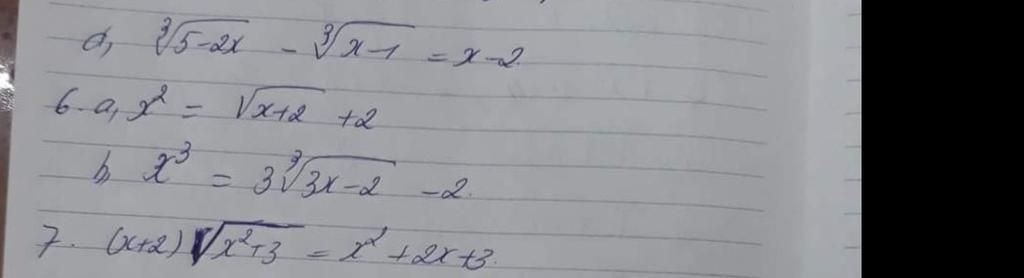 d, ∛(5-2x) - ∛(x-1) = x-2
6. a, x² = √(x+2) + 2
b, x³ = 3∛(3x-2) - 2.
7. (x+2)√(x²+3) = x² + 2x + 3.